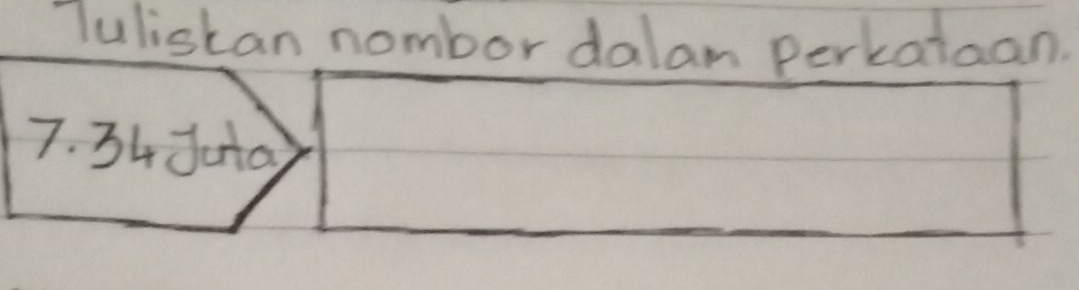 Tuliskan nombor dalam perkataan.
7.34 Juta